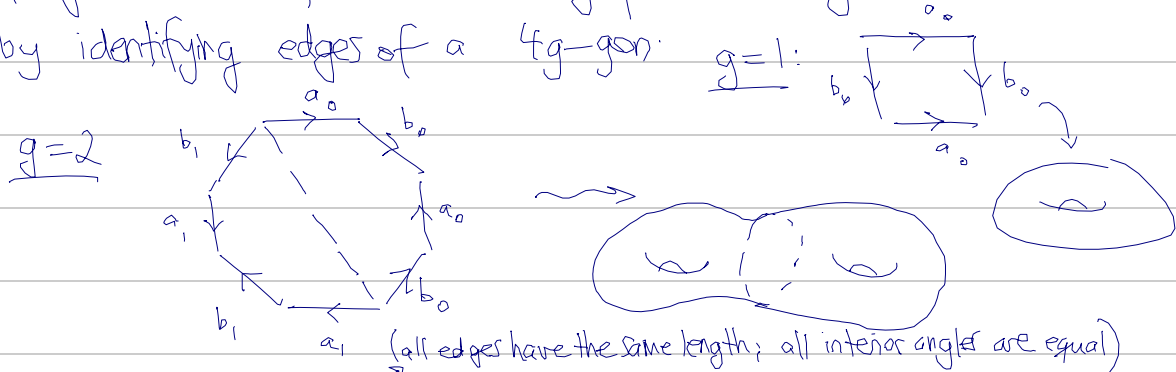 by identifying edges of a 4g-gon.
g=1:
a₀
b₀
b₀
a₀
g=2
a₀
b₁
b₀
a₁
a₀
b₁
b₀
a₁
(all edges have the same length; all interior angles are equal)